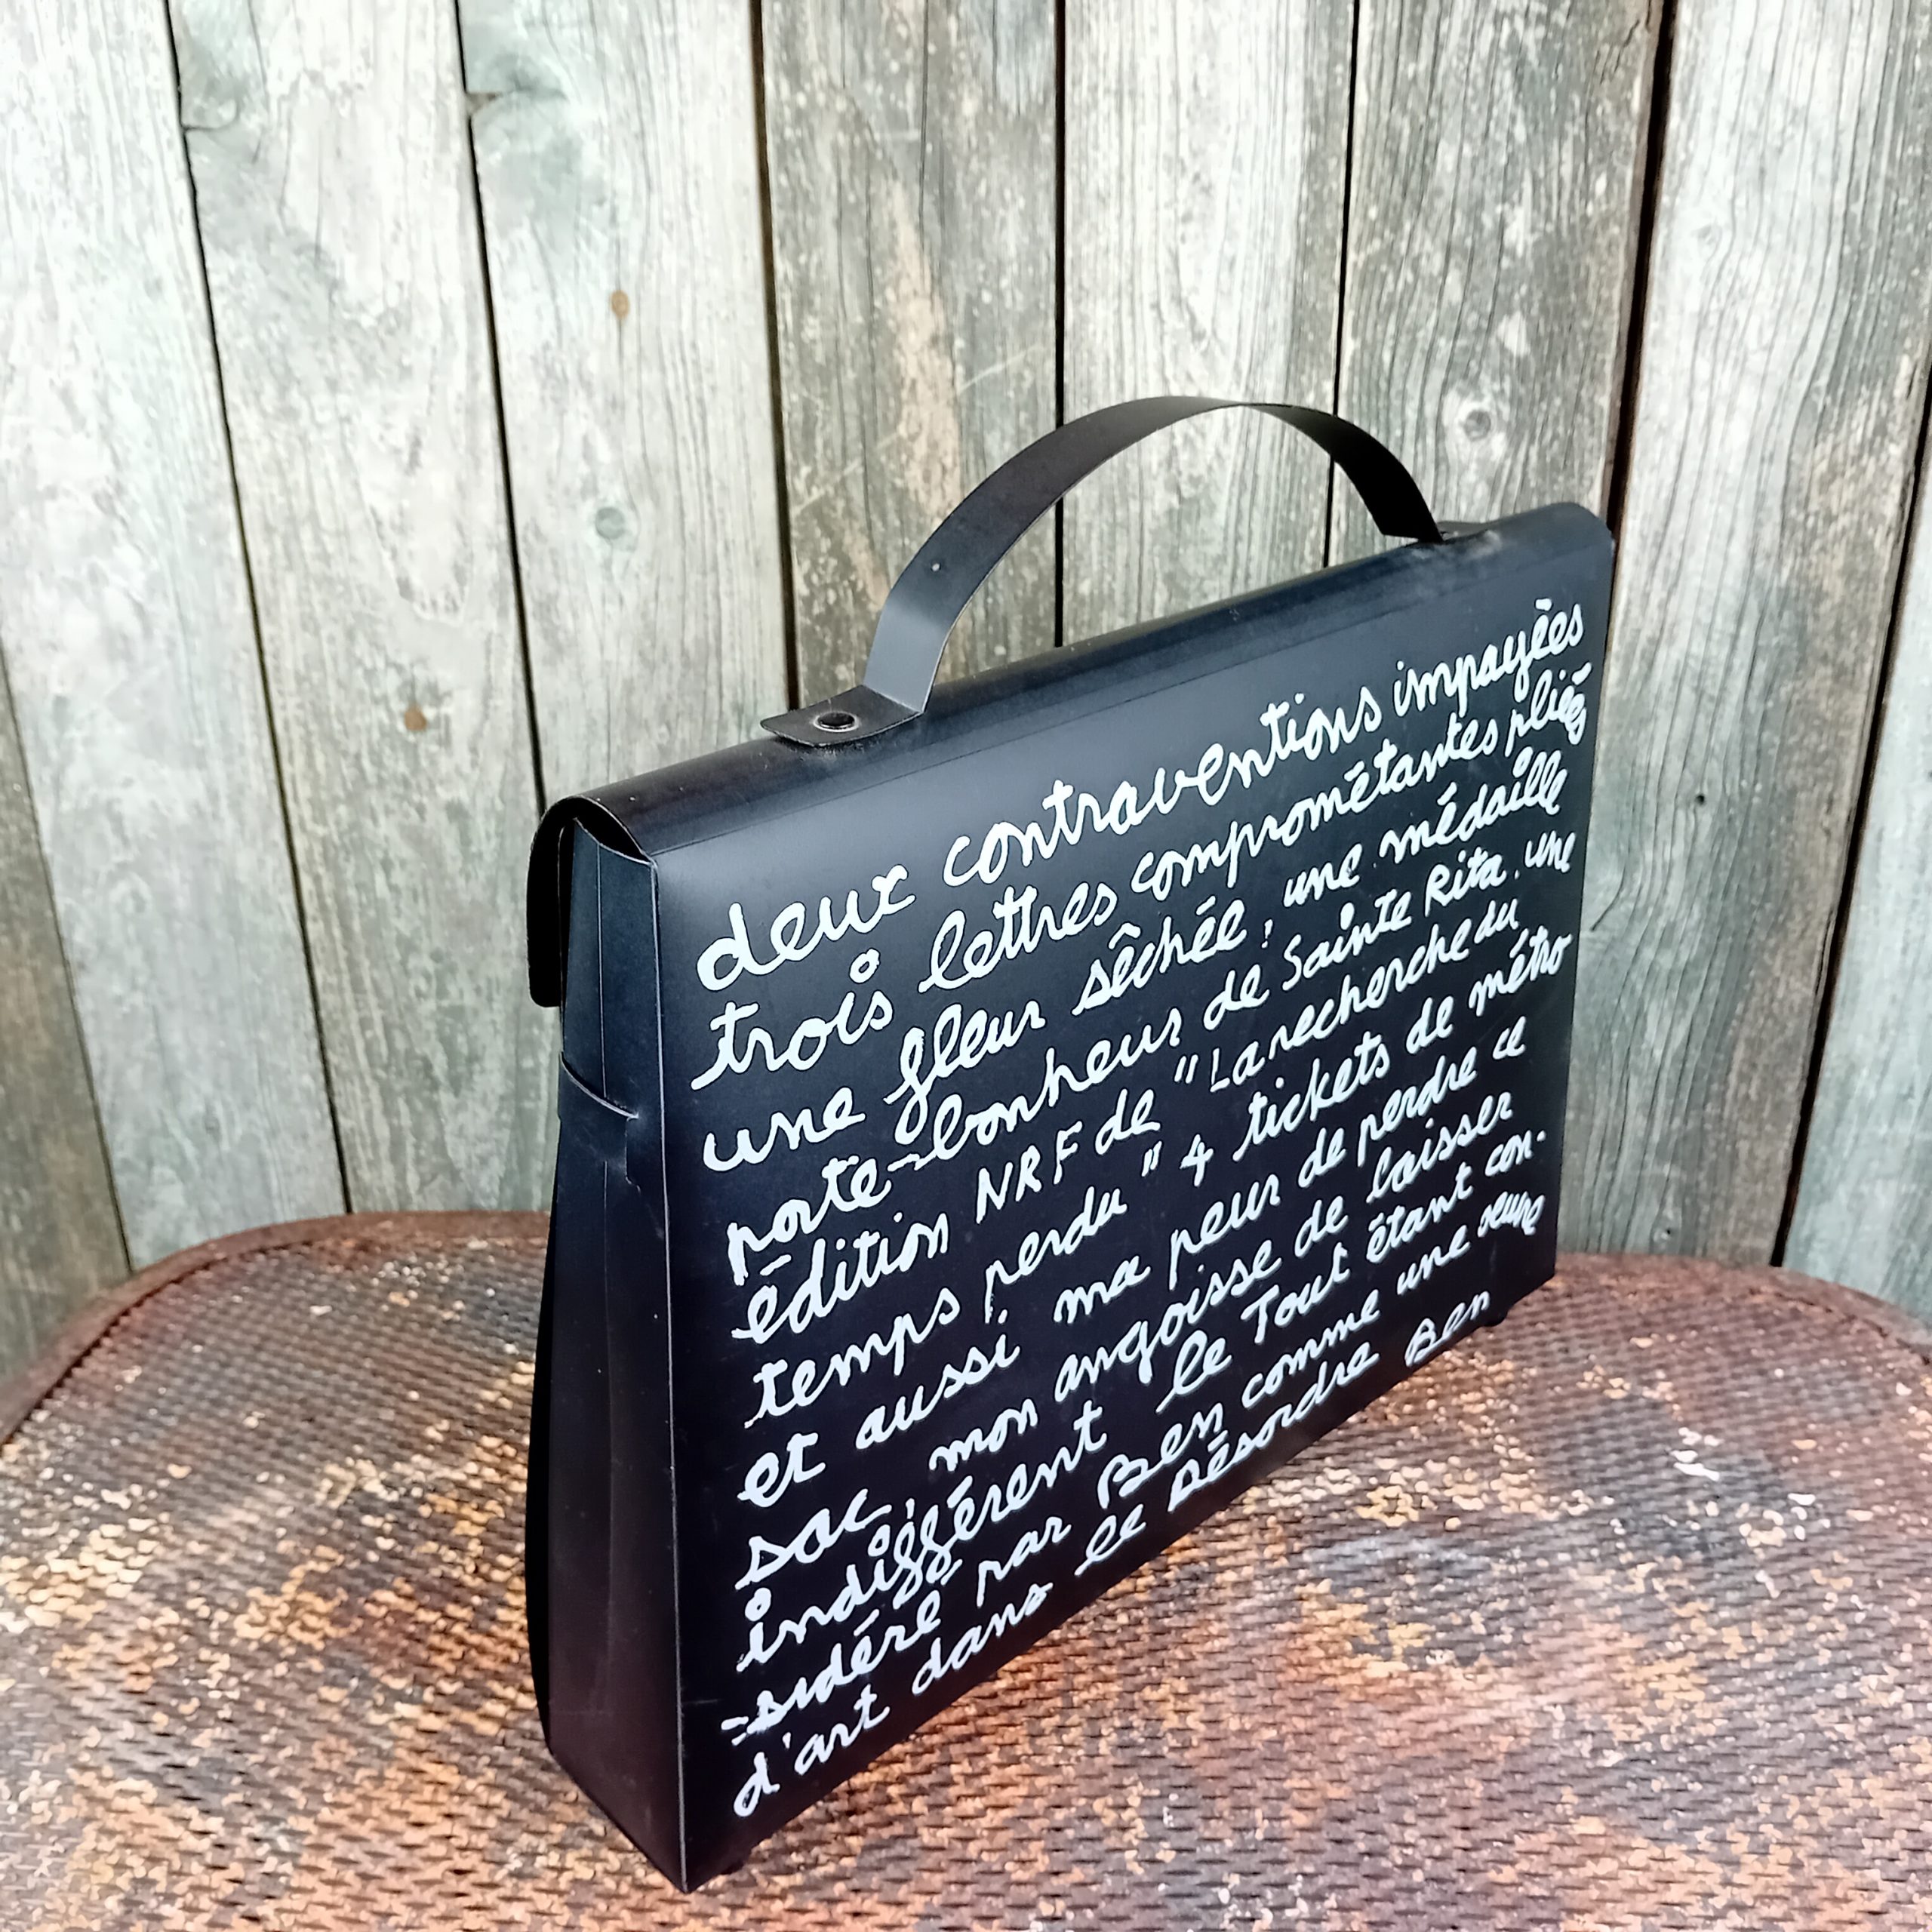 deux contraventions impayées
trois lettres comprométantes pliées
une fleur sêchée, une médaille
porte-bonheur de Sainte Rita. une
édition NRF de "La recherche du
temps perdu" 4 tickets de métro
et aussi ma peur de perdre ce
sac, mon angoisse de laisser
indifférent le Tout étant con-
-sidéré par Ben comme une œuvre
d'art dans le Désordre Ben